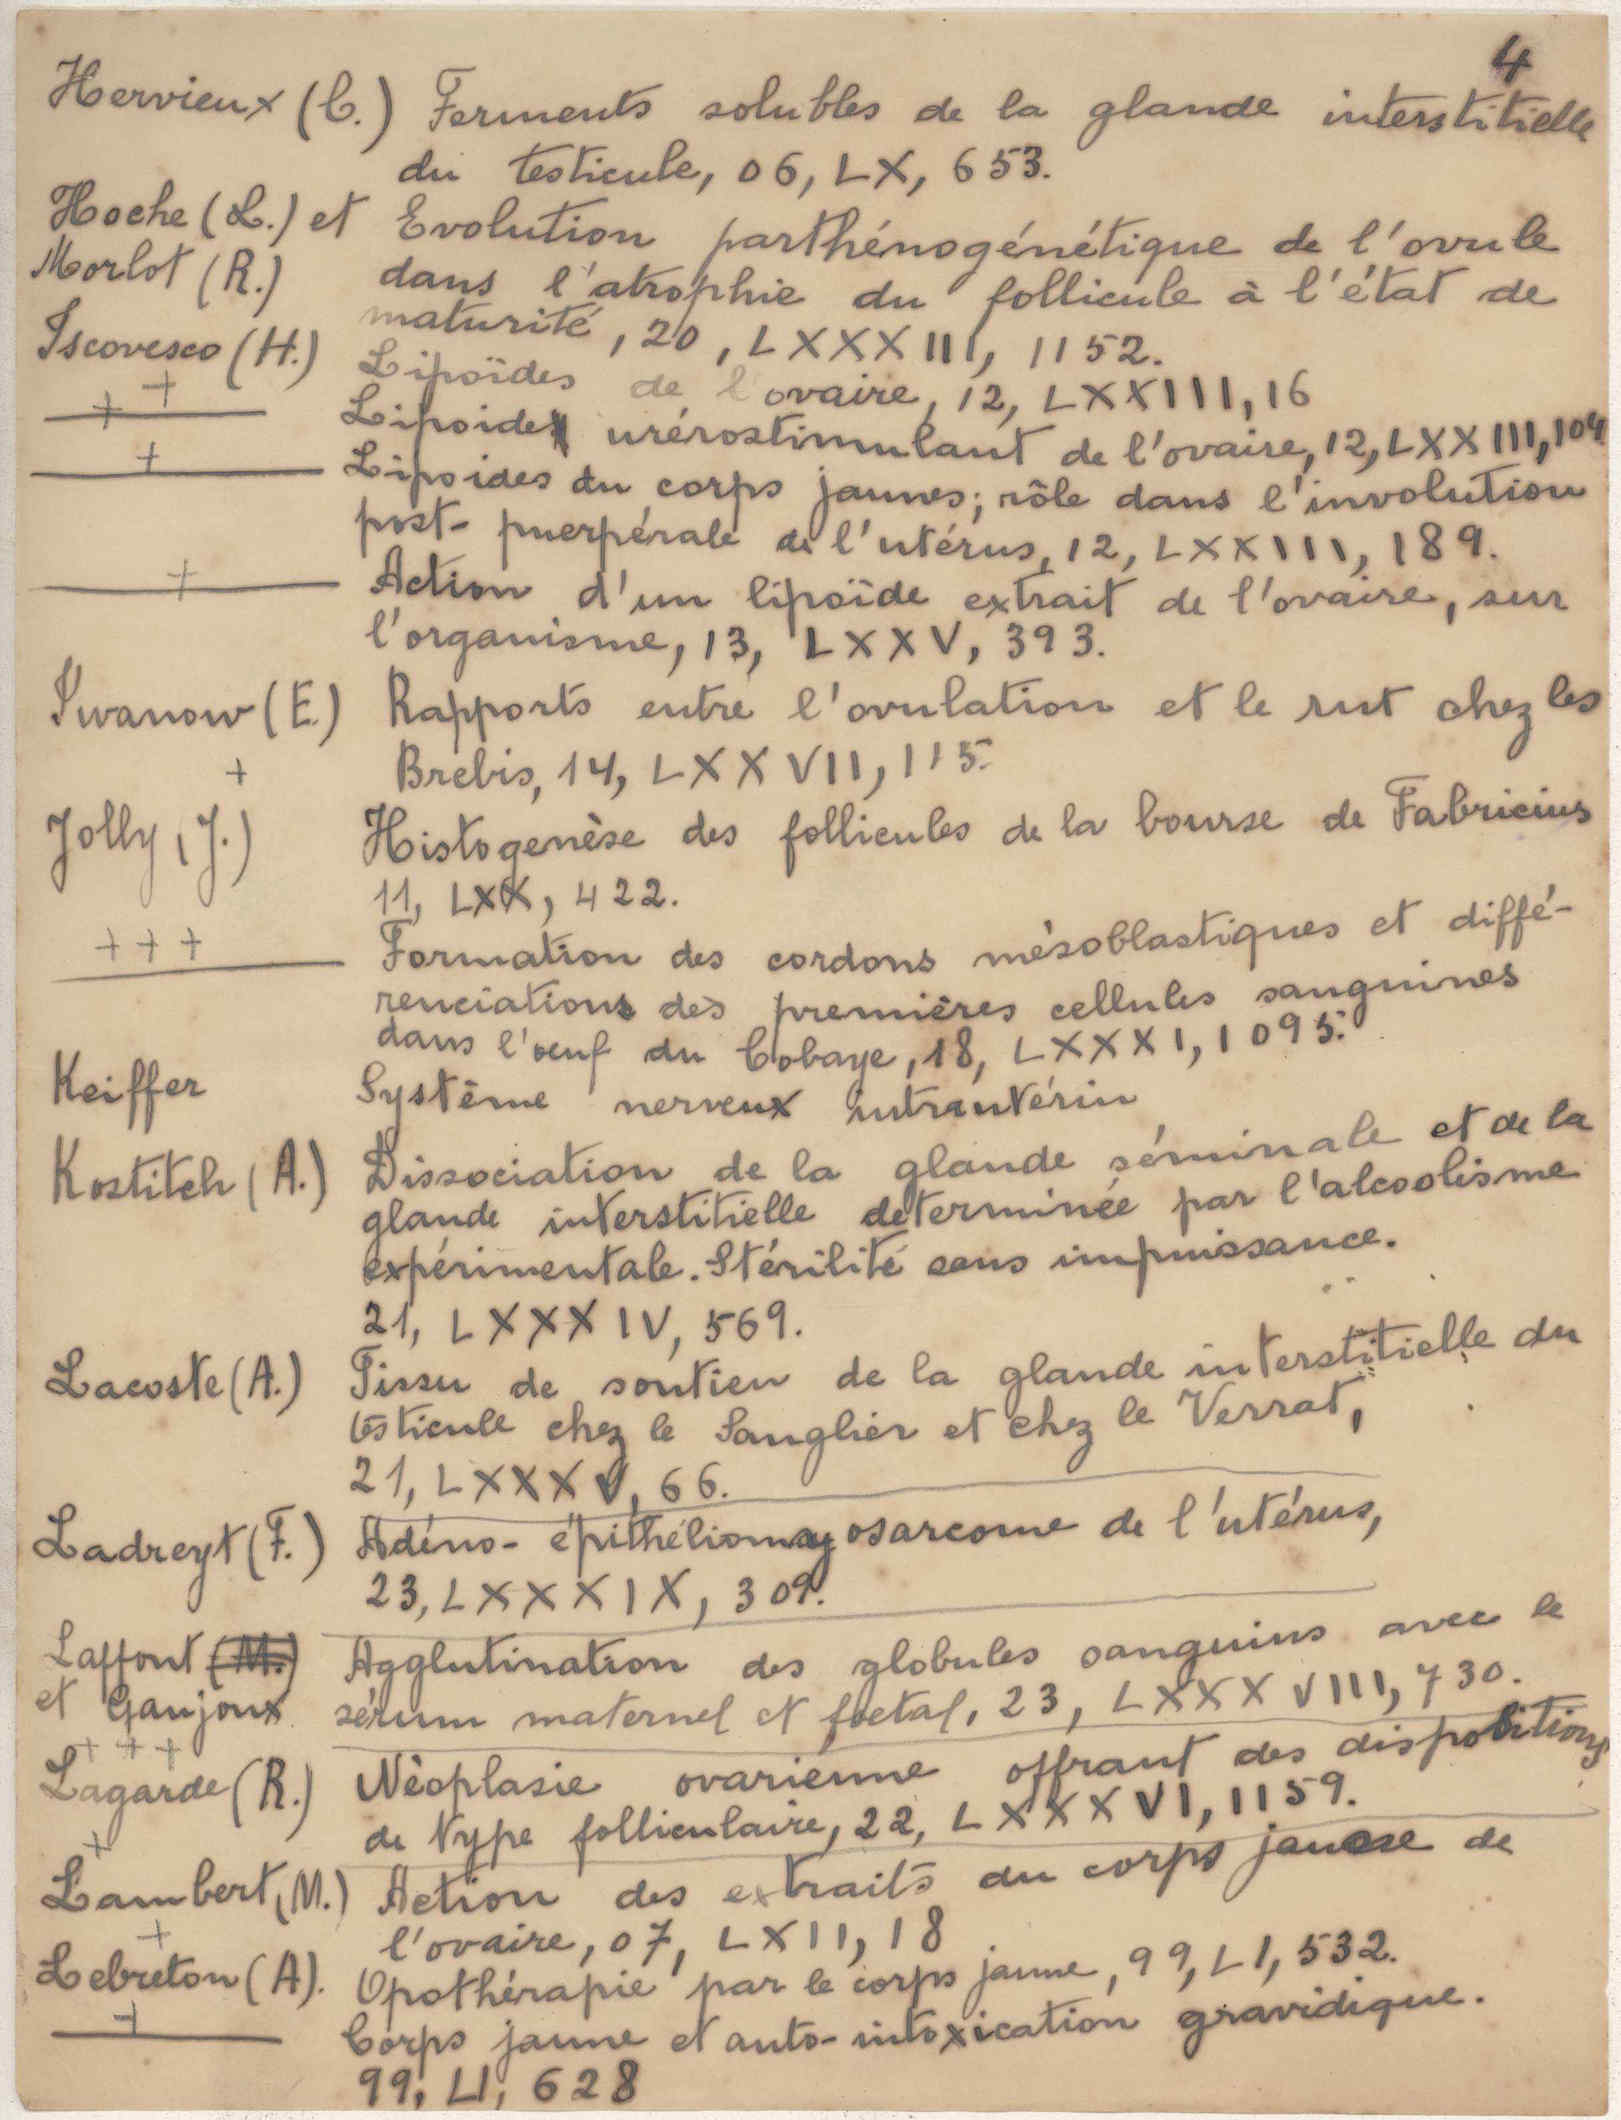 4
Hervieux (C.) Ferments solubles de la glande interstitielle
du testicule, 06, LX, 653.
Hoche (L.) et Evolution parthénogénétique de l'ovule
Morlot (R.) dans l'atrophie du follicule à l'état de
maturité, 20, LXXXIII, 1152.
Iscovesco (H.) Lipoïdes de l'ovaire, 12, LXXIII, 16
+ + Lipoide urérostimulant de l'ovaire, 12, LXXIII, 104
+ Lipoides du corps jaunes; rôle dans l'involution
post-puerpérale de l'utérus, 12, LXXIII, 189.
+ Action d'un lipoïde extrait de l'ovaire, sur
l'organisme, 13, LXXV, 393.
Iwanow (E.) Rapports entre l'ovulation et le rut chez les
+ Brebis, 14, LXXVII, 115.
Jolly (J.) Histogenèse des follicules de la bourse de Fabricius
11, LXX, 422.
+++ Formation des cordons mésoblastiques et diffé-
renciations des premières cellules sanguines
dans l'oeuf du Cobaye, 18, LXXXI, 1095.
Keiffer Système nerveux intrautérin
Kostitch (A.) Dissociation de la glande séminale et de la
glande interstitielle determinée par l'alcoolisme
expérimentale. Stérilité sans impuissance.
21, LXXXIV, 569.
Lacoste (A.) Tissu de soutien de la glande interstitielle du
testicule chez le Sanglier et chez le Verrat,
21, LXXXV, 66.
Ladreyt (F.) Adéno-épithéliomyosarcome de l'utérus,
23, LXXXIX, 309.
Laffont (M.) Agglutination des globules sanguins avec le
et Gaujoux sérum maternel et foetal, 23, LXXXVIII, 730.
+++
Lagarde (R.) Néoplasie ovarienne offrant des dispositions
+ de type folliculaire, 22, LXXXVI, 1159.
Lambert (M.) Action des extraits du corps jaune de
+ l'ovaire, 07, LXII, 18
Lebreton (A). Opothérapie par le corps jaune, 99, LI, 532.
+ Corps jaune et auto-intoxication gravidique.
99, LI, 628